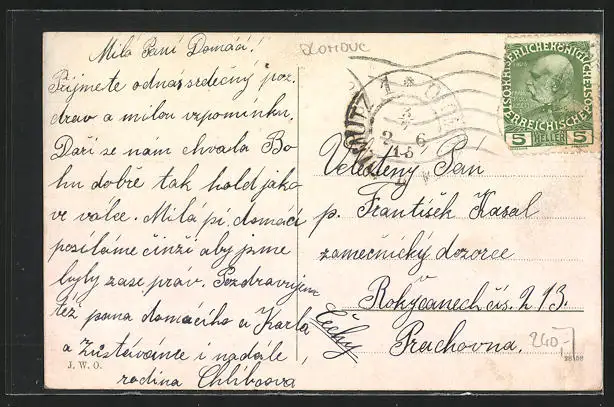 Milá Paní Domácí!
Přijmete od nás srdečný poz
drav a milou vzpomínku.
Daří se nám chvála Bo
hu dobře tak holt jako
ve válce. Milá pí. domácí
posíláme činži aby jsme
byly zase práv. Pozdravujem
též pana domácího a Karla
a Zůstávánce i nadále
rodina Chlibcova
J. W. O.
OLOMOUC
OLMÜTZ 1
15
KAISERLICHE KÖNIGLICHE
ÖSTERREICHISCHE POST
5 HELLER 5
Veledĕný Pán
p. František Kasal
zámečnický dozorce
v
Rokycanech čís. 213.
Prachovna.
Čechy
240,-
28108